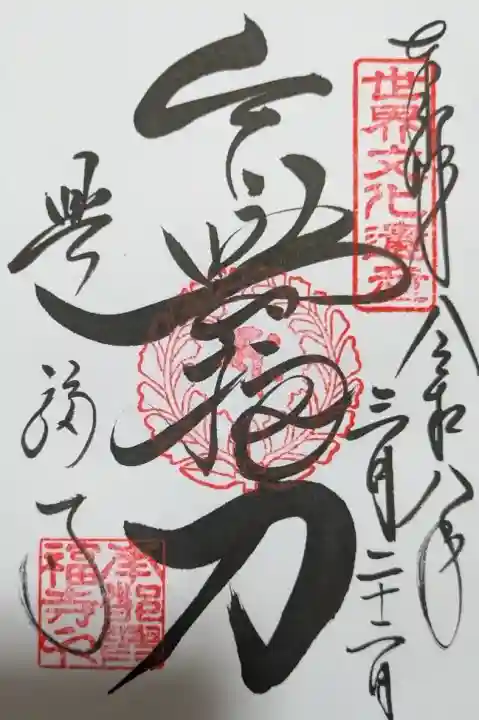 奉拝 令和八年
三月二十日
世界文化遺産
令興福力
興福寺